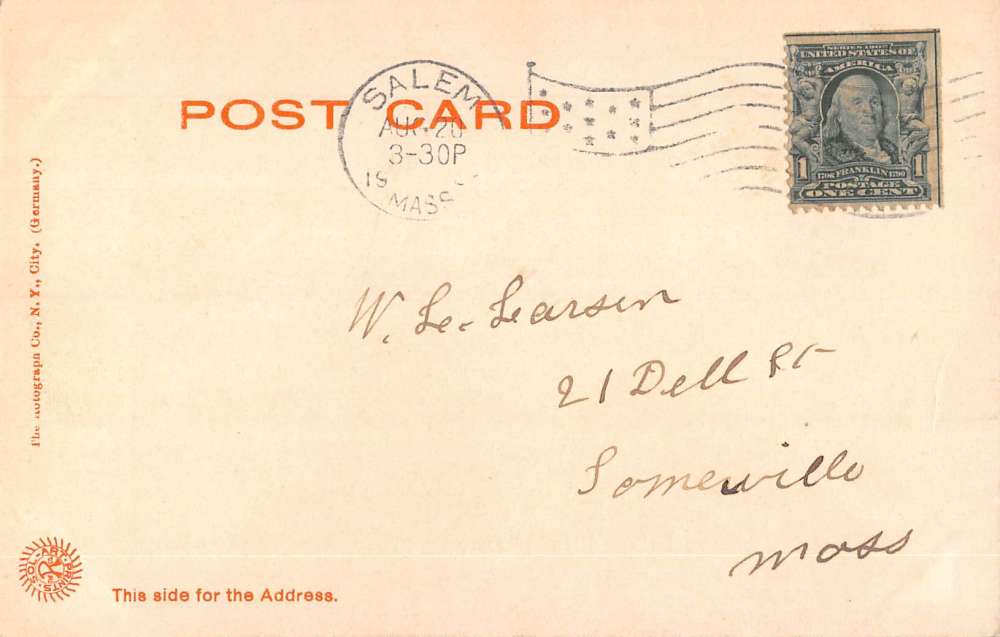 POST CARD
SALEM
AUG 20
3-30P
19
MASS
SERIES 1902
UNITED STATES OF
AMERICA
1 1706 FRANKLIN 1790 1
POSTAGE
ONE CENT
W. Le. Larsen
21 Dell St
Somerville
Mass
The Rotograph Co., N. Y., City. (Germany.)
SOL ART PRINTS
This side for the Address.